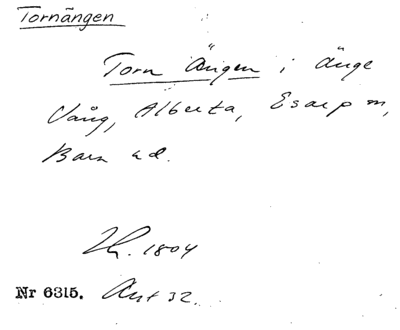 Tornängen
Torn Ängen i Änge
Vång, Alberta, Esarp m,
Bara hd.
1804
Nr 6315. Akt 32.